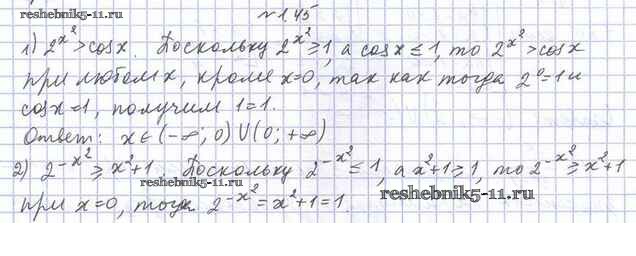 № 1.45
reshebnik5-11.ru
1) 2^{x^2} > cos x. Поскольку 2^{x^2} ≥ 1, а cos x ≤ 1, то 2^{x^2} > cos x
при любом x, кроме x=0, так как тогда 2^0=1 и
cos x=1, получим 1=1.
Ответ: x∈(-∞; 0) U (0; +∞)
2) 2^{-x^2} ≥ x^2+1. Поскольку 2^{-x^2} ≤ 1, а x^2+1 ≥ 1, то 2^{-x^2} ≥ x^2+1
reshebnik5-11.ru
reshebnik5-11.ru
при x=0, тогда 2^{-x^2} = x^2+1 = 1.